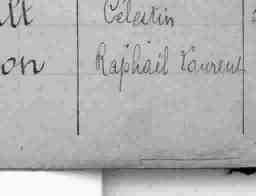 Célestin
on Raphaël Laurent